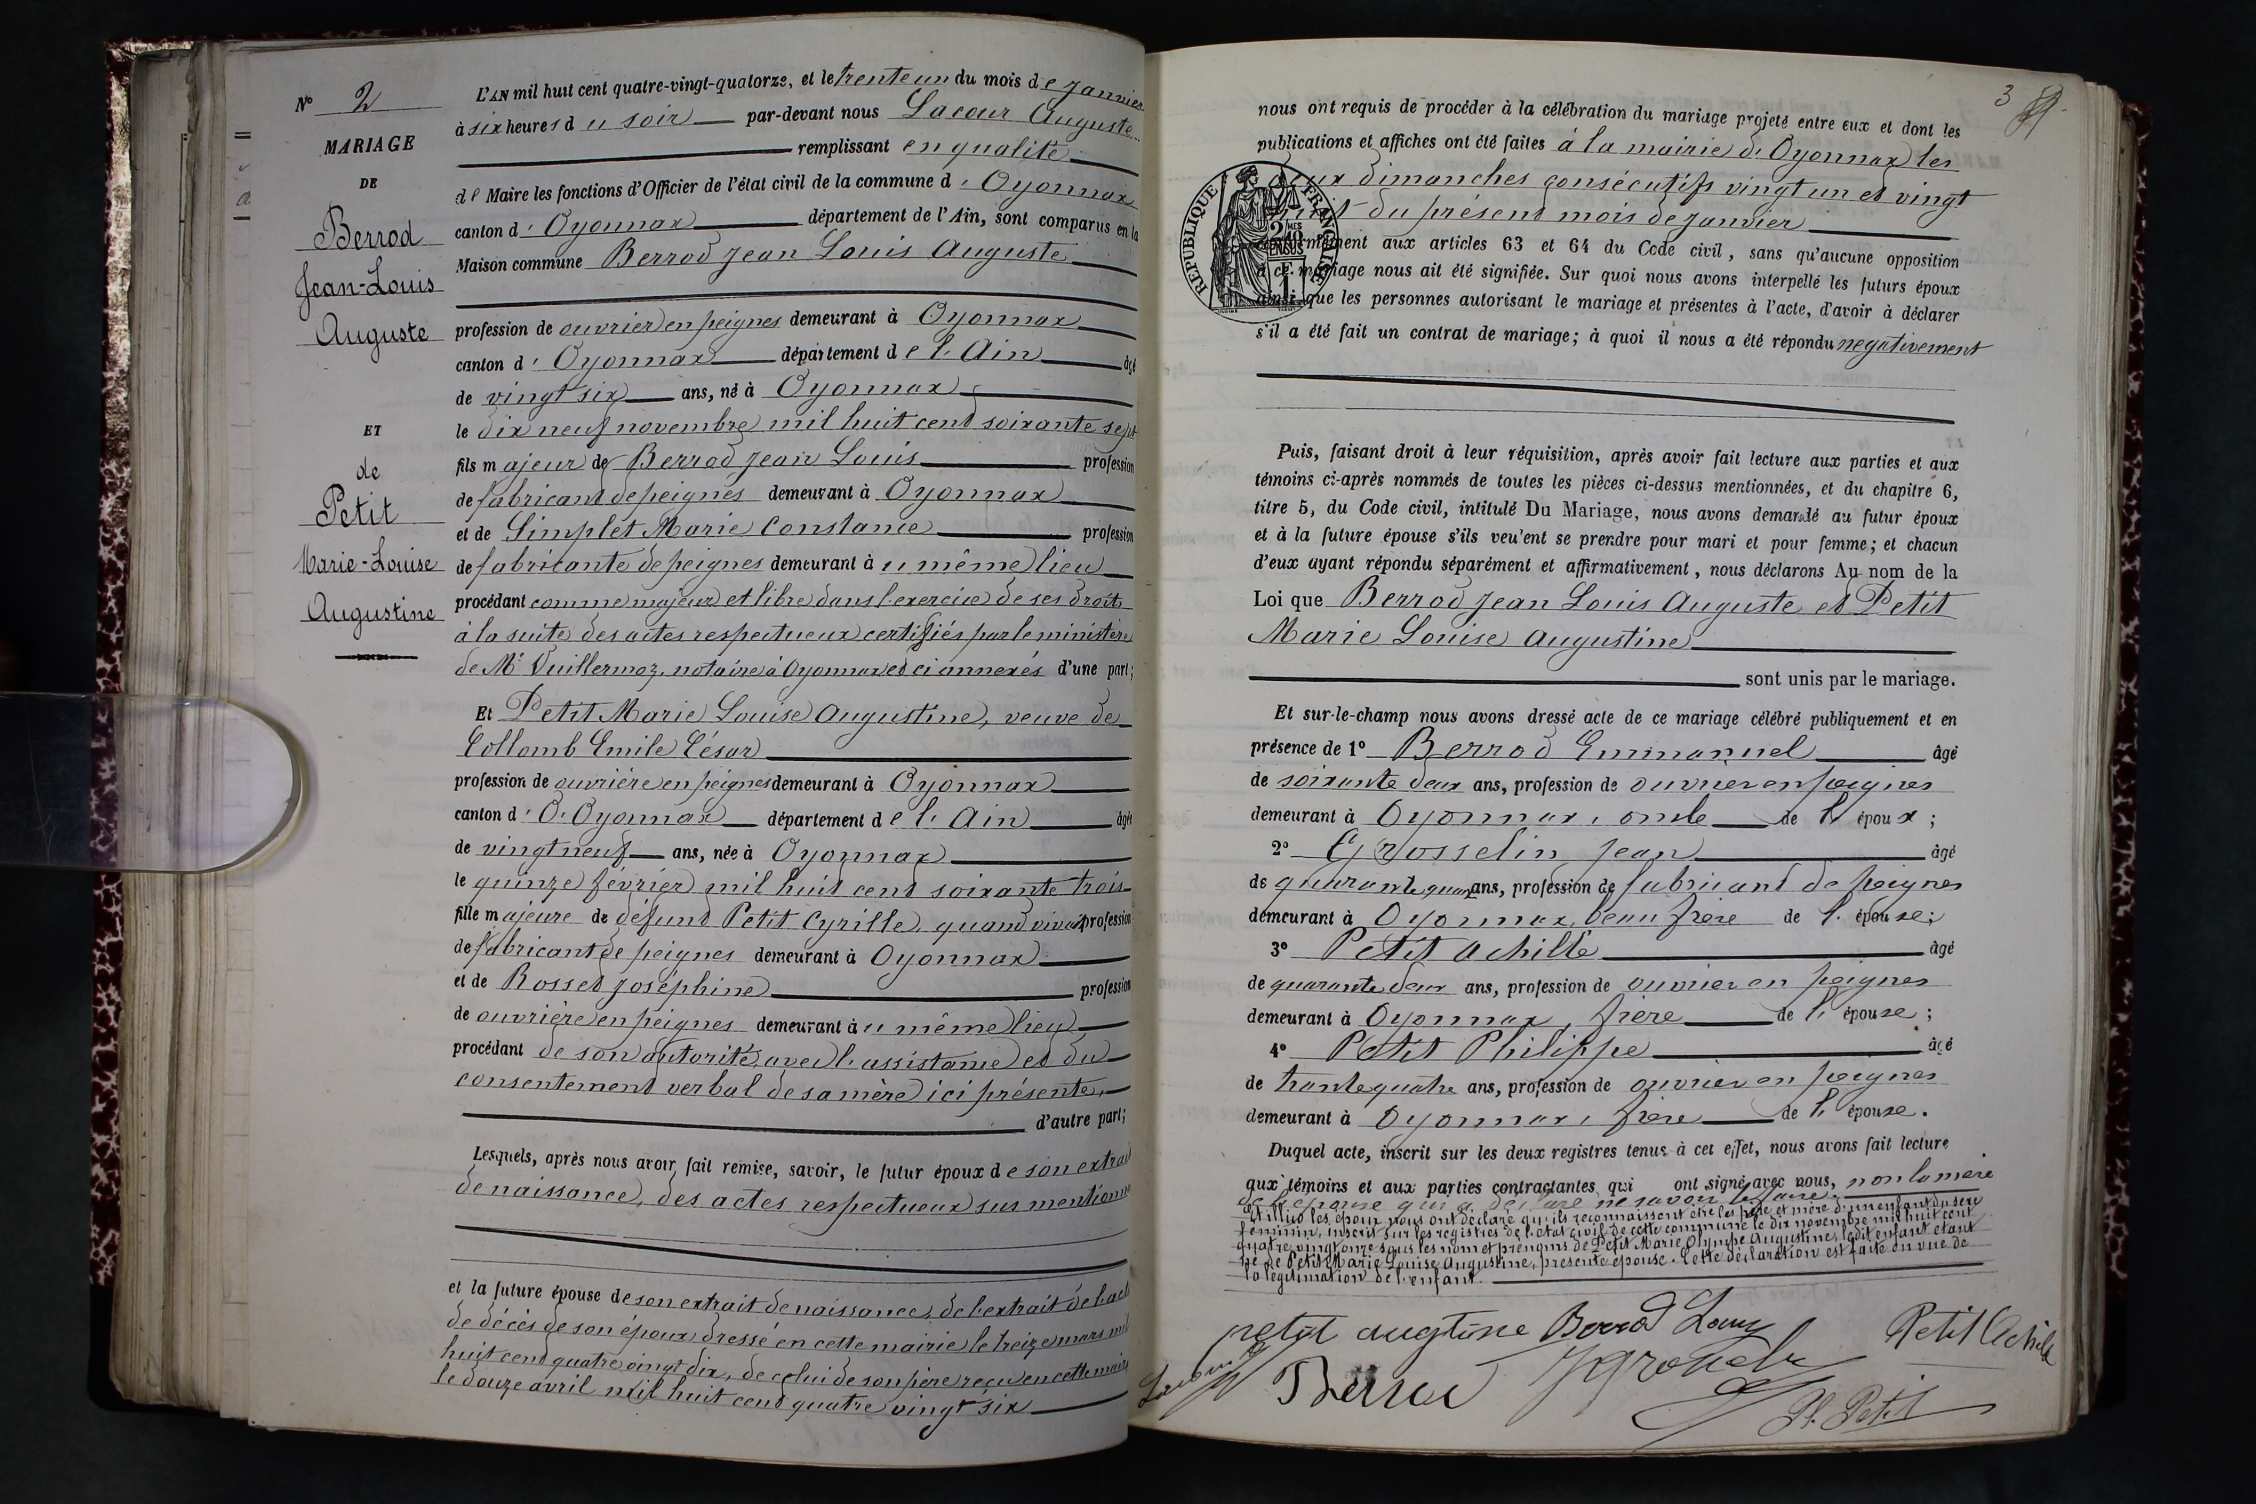 N° 2
MARIAGE
DE
Berrod
Jean-Louis
Auguste
ET
de
Petit
Marie-Louise
Augustine
L'AN mil huit cent quatre-vingt-quatorze, et le trente un du mois de Janvier
à six heures du soir par-devant nous Lacour Auguste
remplissant en qualité
de Maire les fonctions d'Officier de l'état civil de la commune d'Oyonnax
canton d'Oyonnax département de l'Ain, sont comparus en la
Maison commune Berrod Jean Louis Auguste
profession de ouvrier en peignes demeurant à Oyonnax
canton d'Oyonnax département de l'Ain âgé
de vingt six ans, né à Oyonnax
le dix neuf novembre mil huit cent soixante sept
fils majeur de Berrod Jean Louis profession
de fabricant de peignes demeurant à Oyonnax
et de Simplet Marie Constance profession
de fabricante de peignes demeurant à u même lieu
procédant comme majeur et libre dans l'exercice de ses droits
à la suite des actes respectueux certifiés par le ministère
de Mr Vuillermoz, notaire à Oyonnax et ci annexés d'une part;
Et Petit Marie Louise Augustine, veuve de
Collomb Emile César
profession de ouvrière en peignes demeurant à Oyonnax
canton d'O'Oyonnax département de l'Ain âgée
de vingt neuf ans, née à Oyonnax
le quinze février mil huit cent soixante trois
fille majeure de défunt Petit Cyrille, quand vivait profession
de fabricant de peignes demeurant à Oyonnax
et de Rosset Joséphine profession
de ouvrière en peignes demeurant à u même lieu
procédant de son autorité, avec l'assistance et du
consentement verbal de sa mère ici présente,
d'autre part;
Lesquels, après nous avoir fait remise, savoir, le futur époux de son extrait
de naissance, des actes respectueux sus mentionnés
et la future épouse de son extrait de naissance, de l'extrait de l'acte
de décès de son époux dressé en cette mairie le treize mars mil
huit cent quatre vingt dix, de celui de son père reçu en cette mairie
le douze avril mil huit cent quatre vingt six
3
nous ont requis de procéder à la célébration du mariage projeté entre eux et dont les
publications et affiches ont été faites à la mairie d'Oyonnax les
deux dimanches consécutifs vingt un et vingt
huit du présent mois de janvier
conformément aux articles 63 et 64 du Code civil, sans qu'aucune opposition
à ce mariage nous ait été signifiée. Sur quoi nous avons interpellé les futurs époux
ainsi que les personnes autorisant le mariage et présentes à l'acte, d'avoir à déclarer
s'il a été fait un contrat de mariage; à quoi il nous a été répondu negativement
RÉPUBLIQUE FRANÇAISE
Puis, faisant droit à leur réquisition, après avoir fait lecture aux parties et aux
témoins ci-après nommés de toutes les pièces ci-dessus mentionnées, et du chapitre 6,
titre 5, du Code civil, intitulé Du Mariage, nous avons demandé au futur époux
et à la future épouse s'ils veu'ent se prendre pour mari et pour femme; et chacun
d'eux ayant répondu séparément et affirmativement, nous déclarons Au nom de la
Loi que Berrod Jean Louis Auguste et Petit
Marie Louise Augustine
sont unis par le mariage.
Et sur-le-champ nous avons dressé acte de ce mariage célébré publiquement et en
présence de 1° Berrod Emmanuel âgé
de soixante deux ans, profession de ouvrier en peignes
demeurant à Oyonnax, oncle de l' époux;
2° Grosselin Jean âgé
de quarante ans, profession de fabricant de peignes
demeurant à Oyonnax, beau frère de l' épouse;
3° Petit Achille âgé
de quarante deux ans, profession de ouvrier en peignes
demeurant à Oyonnax, frère de l' épouse;
4° Petit Philippe âgé
de trente quatre ans, profession de ouvrier en peignes
demeurant à Oyonnax, frère de l' épouse.
Duquel acte, inscrit sur les deux registres tenus à cet effet, nous avons fait lecture
aux témoins et aux parties contractantes qui ont signé avec nous, non la mère
de l'épouse qui a déclaré ne savoir le faire.
Et illico les époux nous ont déclaré qu'ils reconnaissent être les père et mère d'un enfant du sexe
féminin, inscrit sur les registres de l'état civil de cette commune le dix novembre mil huit cent
quatre vingt onze sous les nom et prénoms de Petit Marie Olympe Augustine, ledit enfant étant
né de Petit Marie Louise Augustine, présente épouse. Cette déclaration est faite en vue de
la légitimation de l'enfant.
petit augstine Berrod Louis Petit Achille
Berrod
Ph. Petit